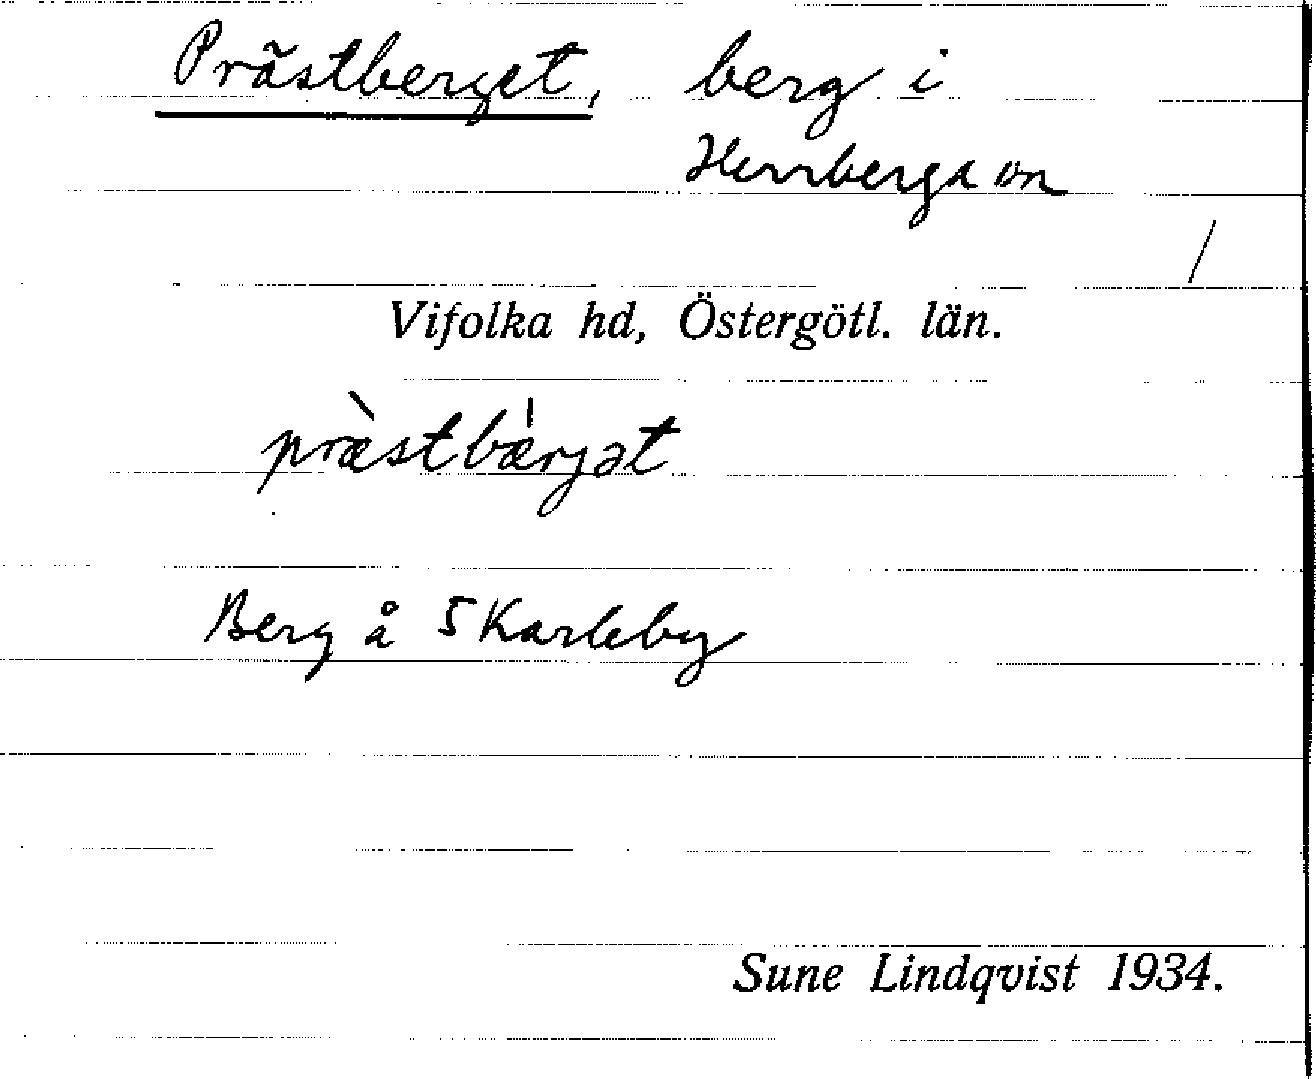 Prästberget, berg i
Herrberga sn
/
Vifolka hd, Östergötl. län.
præ̀stbæ̍rjət
Berg å S Karleby
Sune Lindqvist 1934.